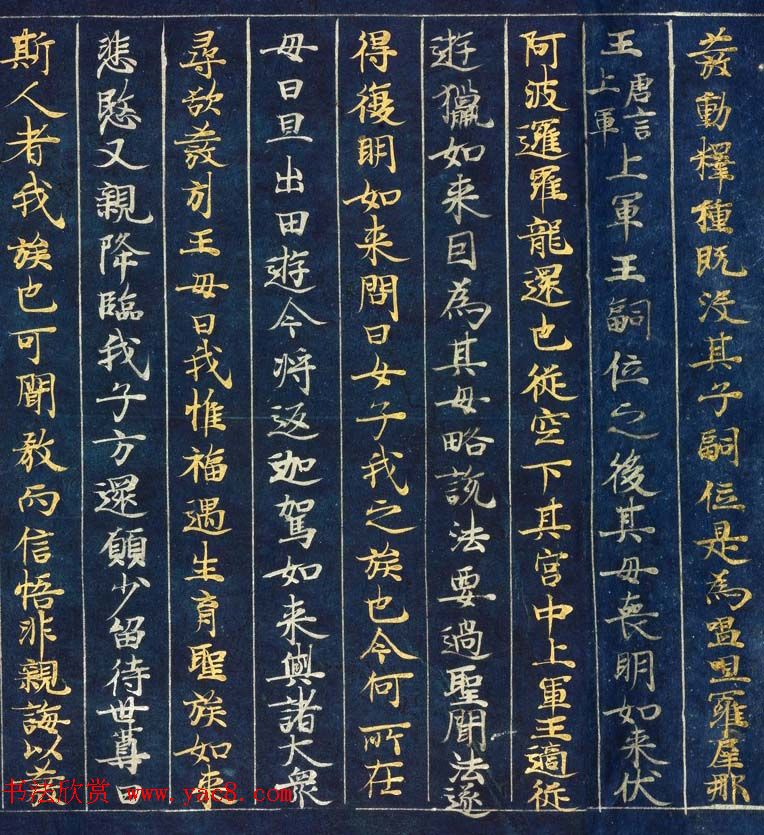 發動釋種既没其子嗣位是為嗢呾羅犀那
王唐言上軍上軍王嗣位之後其母喪明如来伏
阿波邏羅龍還也從空下其宫中上軍王適從
遊獵如来因為其母略説法要過聖聞法遂
得復明如来問曰女子我之族也今何所在
母曰旦出田遊今將返迦駕如来與諸大衆
尋欲發引王母曰我惟福遇生育聖族如来
悲愍又親降臨我子方還願少留待世尊曰
斯人者我族也可聞教而信悟非親誨以發
书法欣赏 www.yac8.com